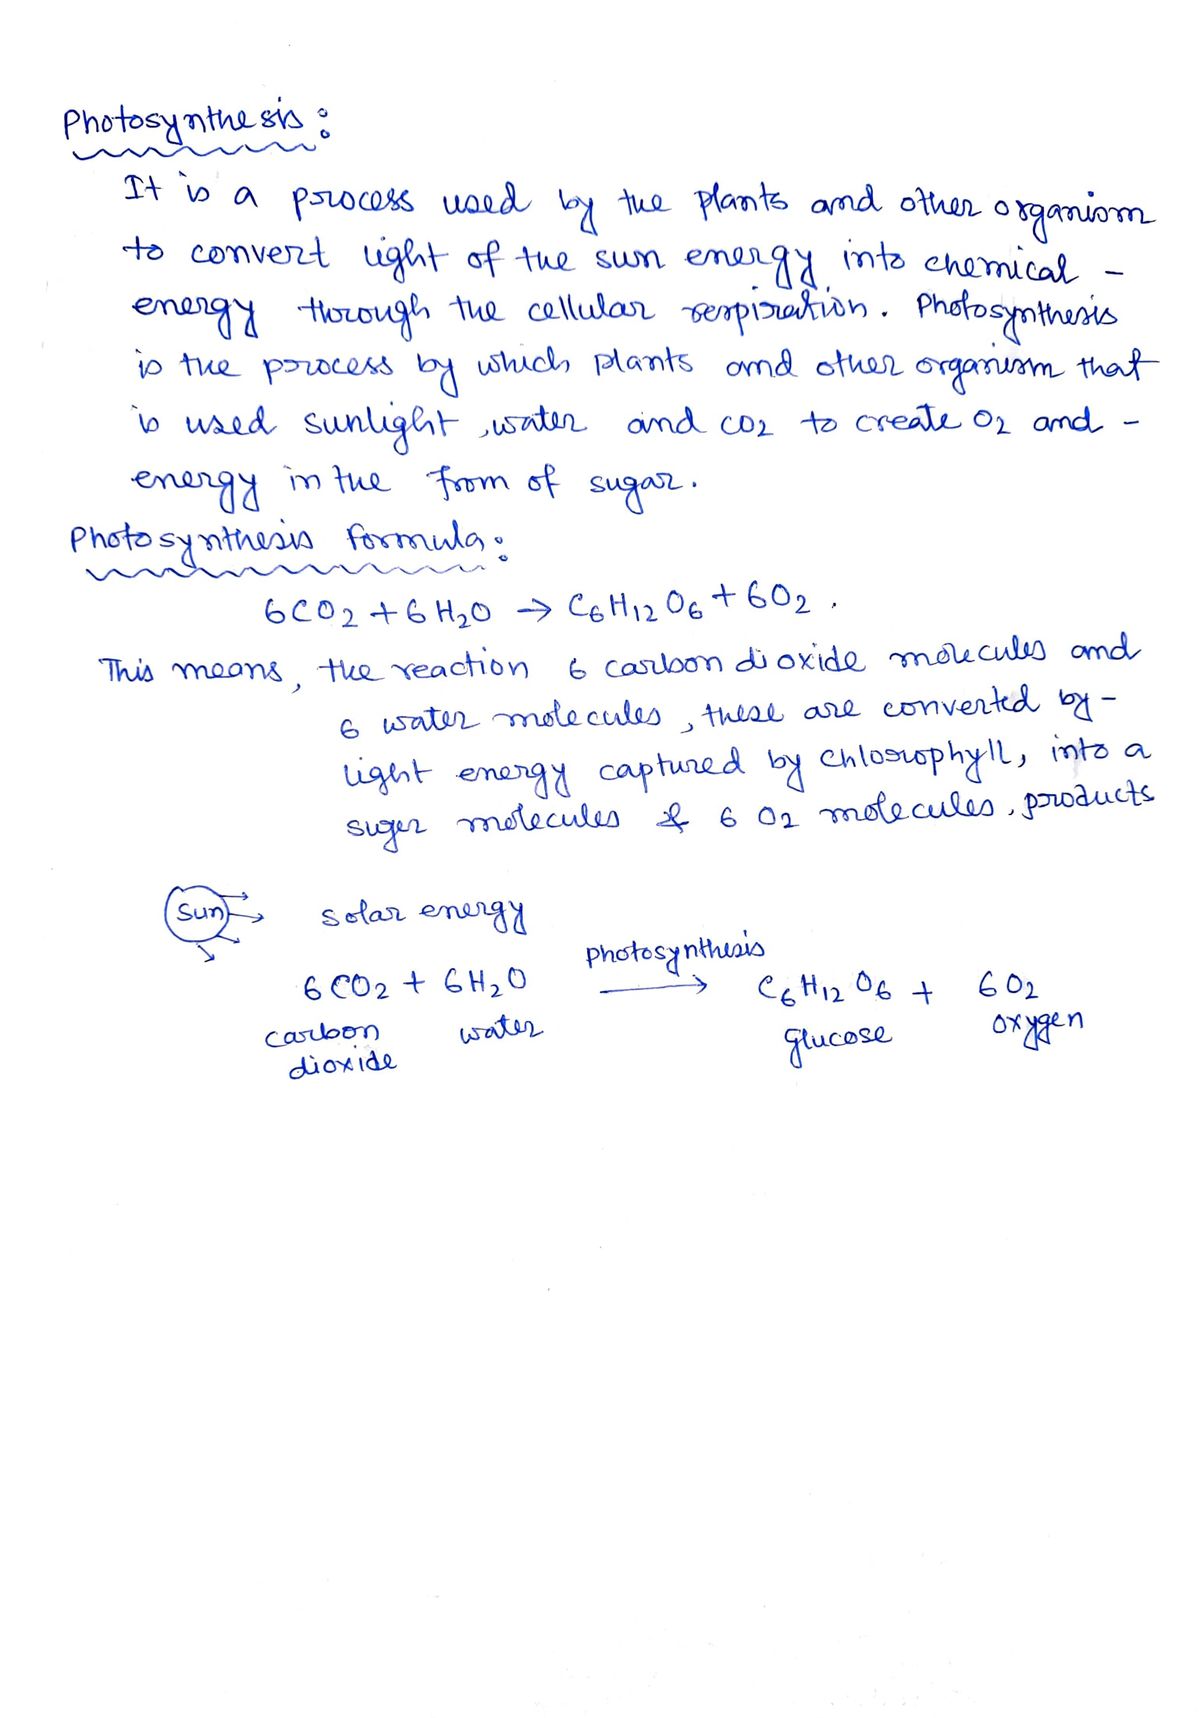 Photosynthesis:
It is a process used by the plants and other organism
to convert light of the sun energy into chemical -
energy through the cellular respiration. Photosynthesis
is the process by which plants and other organism that
is used sunlight, water and CO2 to create O2 and -
energy in the from of sugar.
Photosynthesis formula:
6CO2 + 6H2O → C6H12O6 + 6O2.
This means, the reaction 6 carbon dioxide molecules and
6 water molecules, these are converted by -
light energy captured by chlorophyll, into a
suger molecules & 6 O2 molecules, products
Sun solar energy
photosynthesis
6CO2 + 6H2O → C6H12O6 + 6O2
carbon water glucose oxygen
dioxide